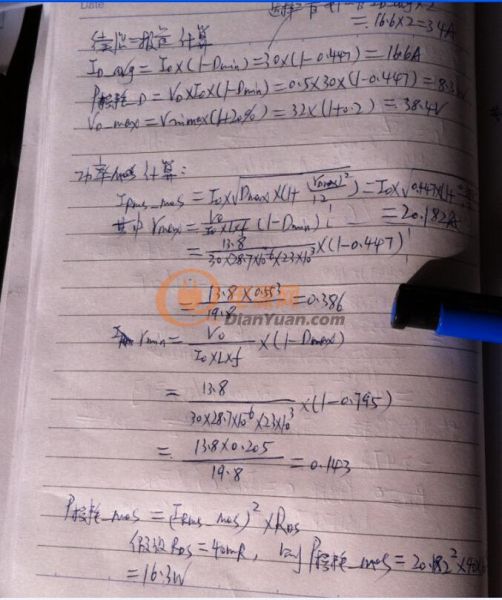 Date
= 16.6×2=34A
续流二极管计算
I_D_avg = Io×(1-Dmin)=30×(1-0.447)=16.6A
P损耗_D = VD×Io×(1-Dmin)=0.5×30×(1-0.447)=8.3W
VD_max=Vinmax(1+20%)=32×(1+0.2)=38.4V
功率mos计算:
IRms_mos=Io×√Dmax×(1+ (rmax)²/12)=Io×√0.447×(1+
=20.182A
其中 rmax= Vo/Io×L×f (1-Dmin)
= 13.8/30×28.7×10⁻⁶×23×10³ ×(1-0.447)
= 13.8×0.553/19.8 =0.386
电源网
DianYuan.com
rmin= Vo/Io×L×f ×(1-Dmax)
= 13.8/30×28.7×10⁻⁶×23×10³ ×(1-0.795)
= 13.8×0.205/19.8 =0.143
P损耗_mos=(IRms_mos)²×RDS
假设RDS=40mR, 则P损耗_mos=20.182²×40
=16.3W